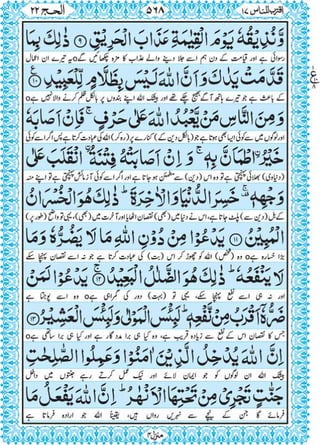 اقترب للناس ۱۷
۵۶۸
الحج ۲۲
وَّنُذِيْقُهٗ يَوْمَ الْقِيٰمَةِ عَذَابَ الْحَرِيْقِ ۹ ذٰلِكَ بِمَا
رسوائی ہے اور قیامت کے دن ہم اسے جلا دینے والے عذاب کا مزہ چکھائیں گے o یہ تیرے ان اعمال
قَدَّمَتْ يَدٰكَ وَاَنَّ اللّٰهَ لَيْسَ بِظَلَّامٍ لِّلْعَبِيْدِ ۱۰
کے باعث ہے جو تیرے ہاتھ آگے بھیج چکے تھے اور بیشک اللہ اپنے بندوں پر بالکل ظلم کرنے والا نہیں ہے o
وَمِنَ النَّاسِ مَنْ يَّعْبُدُ اللّٰهَ عَلٰى حَرْفٍ ۚ فَاِنْ اَصَابَهٗ
اور لوگوں میں سے کوئی ایسا بھی ہوتا ہے جو (بالکل دین کے) کنارے پر (رہ کر) اللہ کی عبادت کرتا ہے، پس اگر اسے کوئی
خَيْرُ ۨاطْمَاَنَّ بِهٖ ۚ وَاِنْ اَصَابَتْهُ فِتْنَةُ ۨانْقَلَبَ عَلٰى
(دنیاوی) بھلائی پہنچتی ہے تو وہ اس (دین) سے مطمئن ہو جاتا ہے اور اگر اسے کوئی آزمائش پہنچتی ہے تو اپنے منہ
وَجْهِهٖ ۚ خَسِرَ الدُّنْيَا وَالْاٰخِرَةَ ؕ ذٰلِكَ هُوَ الْخُسْرَانُ
کے بل (دین سے) پلٹ جاتا ہے، اس نے دنیا میں (بھی) نقصان اٹھایا اور آخرت میں (بھی)، یہی تو واضح (طور پر)
الْمُبِيْنُ ۱۱ يَدْعُوْا مِنْ دُوْنِ اللّٰهِ مَا لَا يَضُرُّهٗ وَمَا
بڑا خسارہ ہے o وہ (شخص) اللہ کو چھوڑ کر اس (بت) کی عبادت کرتا ہے جو نہ اسے نقصان پہنچا سکے
لَا يَنْفَعُهٗ ؕ ذٰلِكَ هُوَ الضَّلٰلُ الْبَعِيْدُ ۱۲ يَدْعُوْا لَمَنْ
اور نہ ہی اسے نفع پہنچا سکے، یہی تو (بہت) دور کی گمراہی ہے o وہ اسے پوجتا ہے
ضَرُّهٗۤ اَقْرَبُ مِنْ نَّفْعِهٖ ؕ لَبِئْسَ الْمَوْلٰى وَلَبِئْسَ الْعَشِيْرُ ۱۳
جس کا نقصان اس کے نفع سے زیادہ قریب ہے، وہ کیا ہی برا مددگار ہے اور کیا ہی برا ساتھی ہے o
اِنَّ اللّٰهَ يُدْخِلُ الَّذِيْنَ اٰمَنُوْا وَعَمِلُوا الصّٰلِحٰتِ
بیشک اللہ ان لوگوں کو جو ایمان لائے اور نیک عمل کرتے رہے جنتوں میں داخل
جَنّٰتٍ تَجْرِيْ مِنْ تَحْتِهَا الْاَنْهٰرُ ؕ اِنَّ اللّٰهَ يَفْعَلُ مَا
فرمائے گا جن کے نیچے سے نہریں رواں ہیں، یقیناً اللہ جو ارادہ فرماتا ہے
منزل ۴